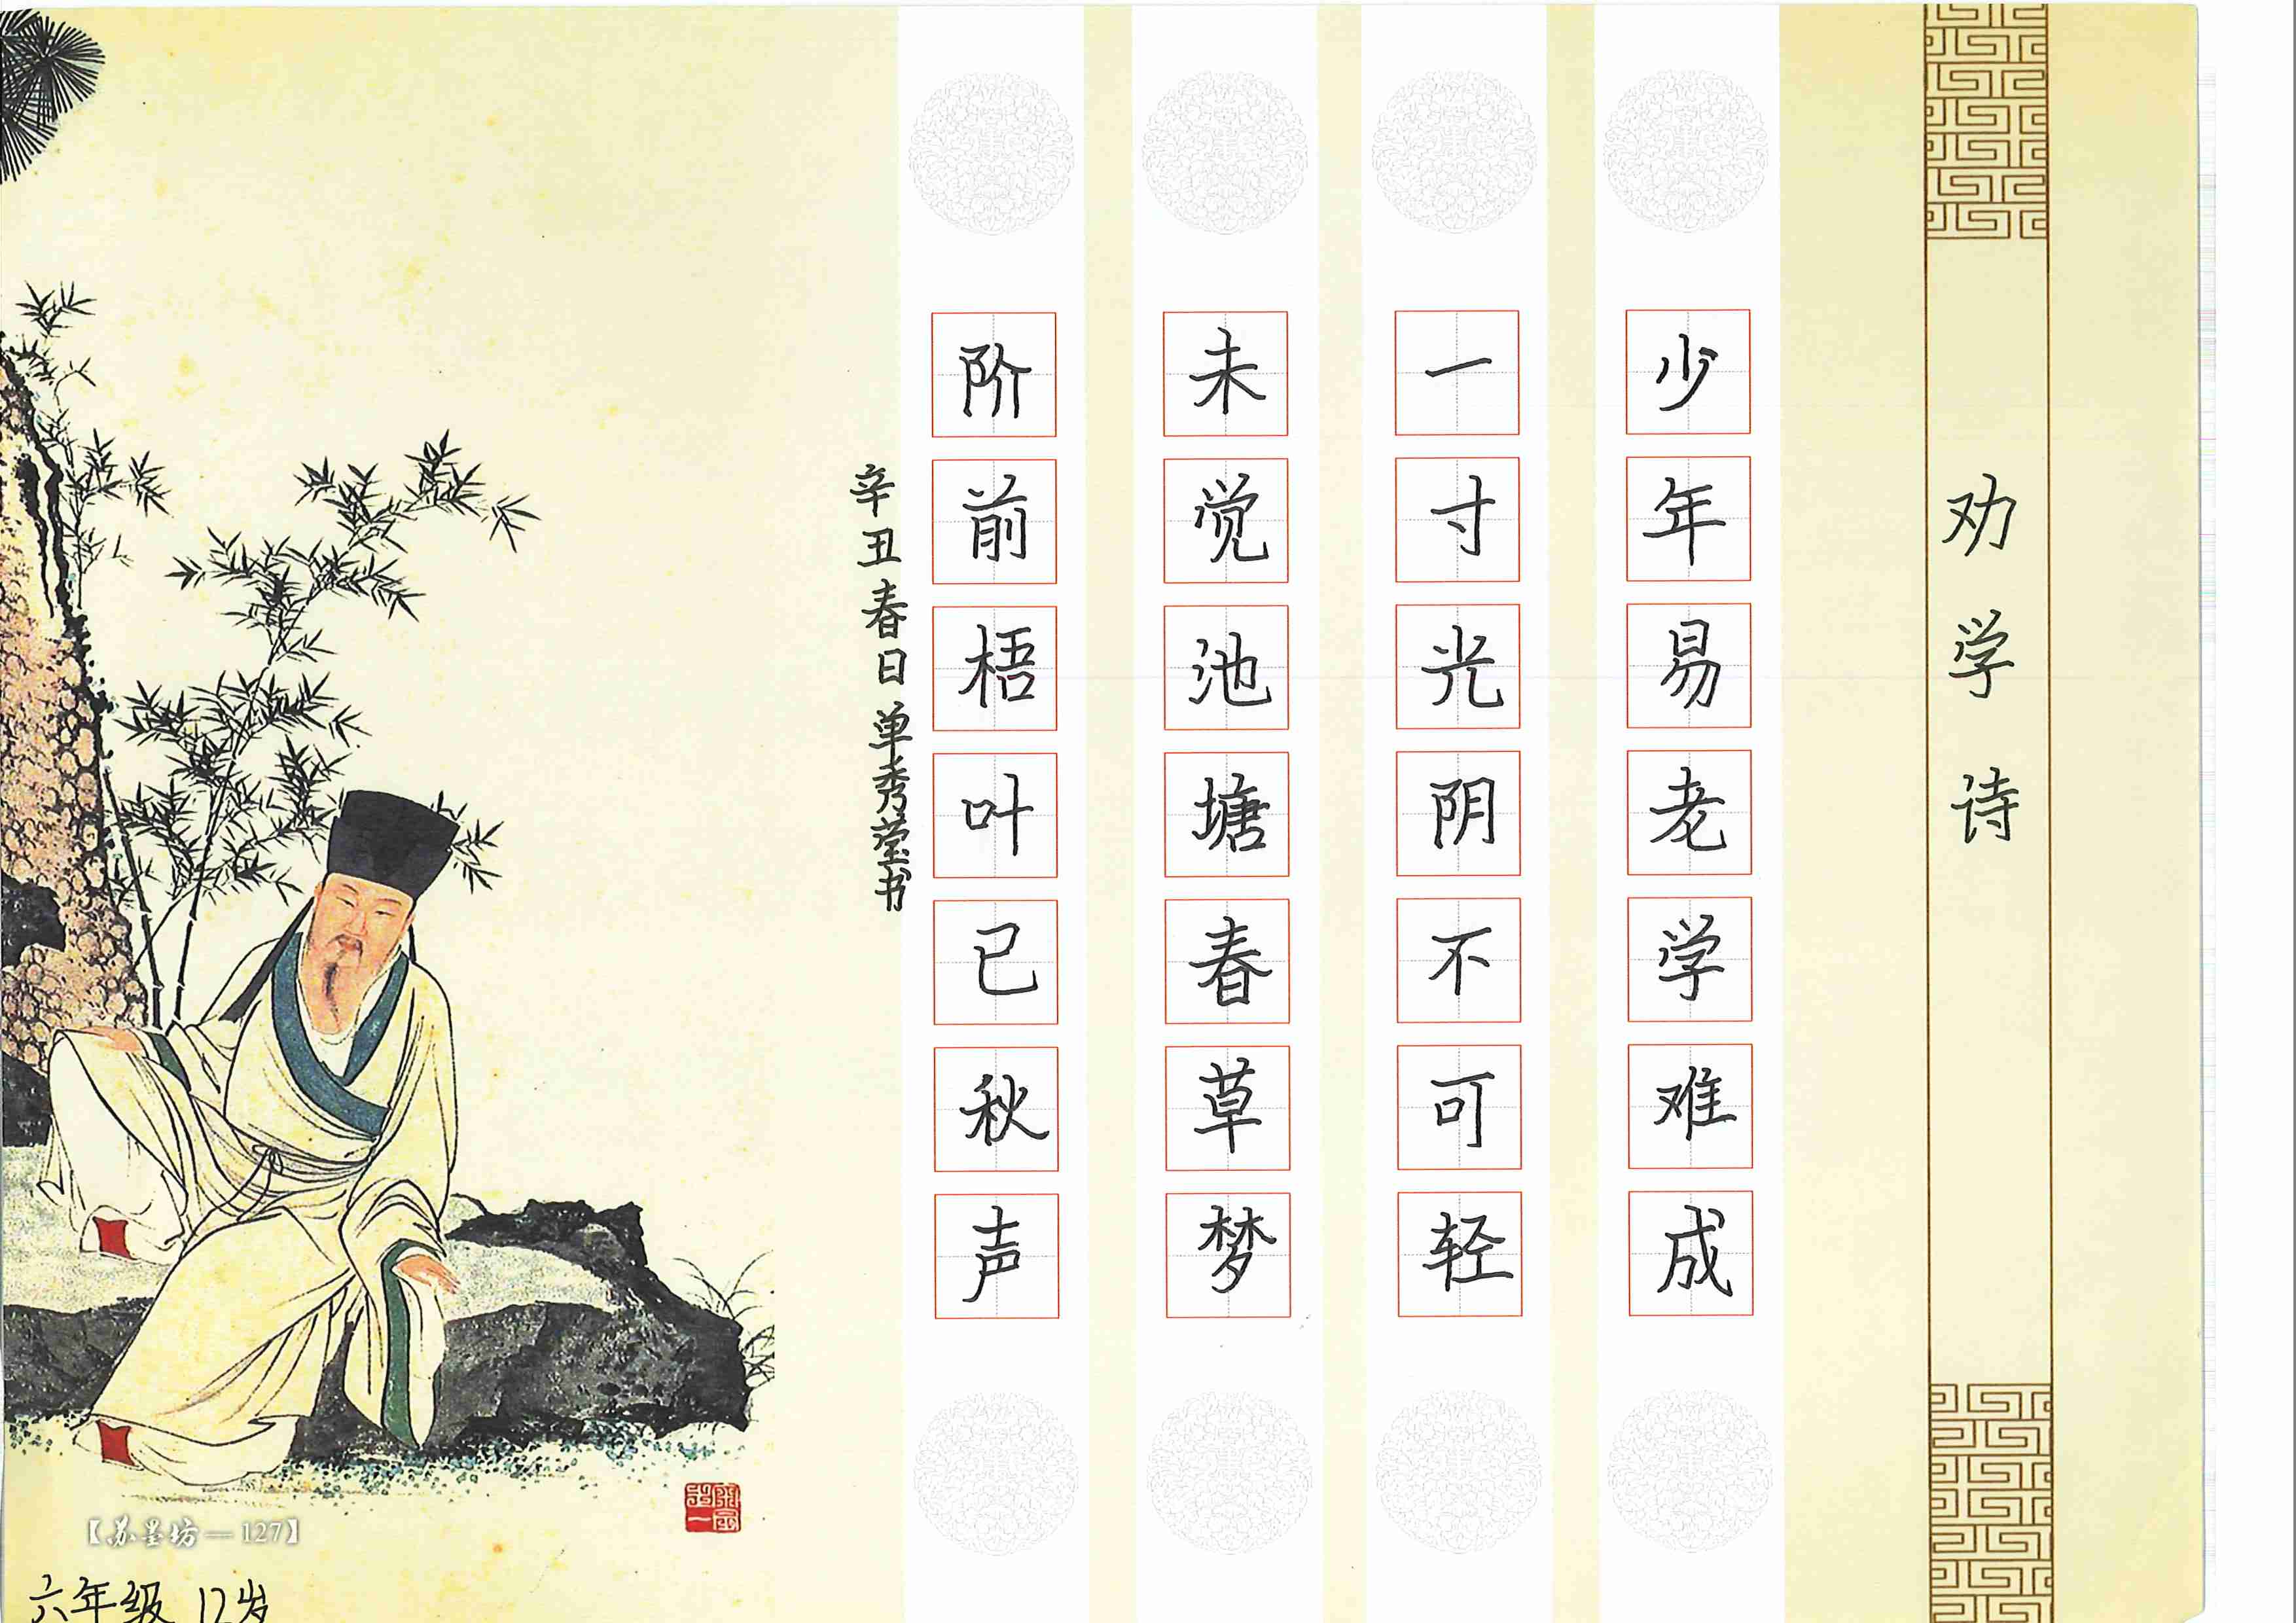 劝学诗
少年易老学难成
一寸光阴不可轻
未觉池塘春草梦
阶前梧叶已秋声
辛丑春日单秀莹书
【苏墨坊—127】
六年级 12岁